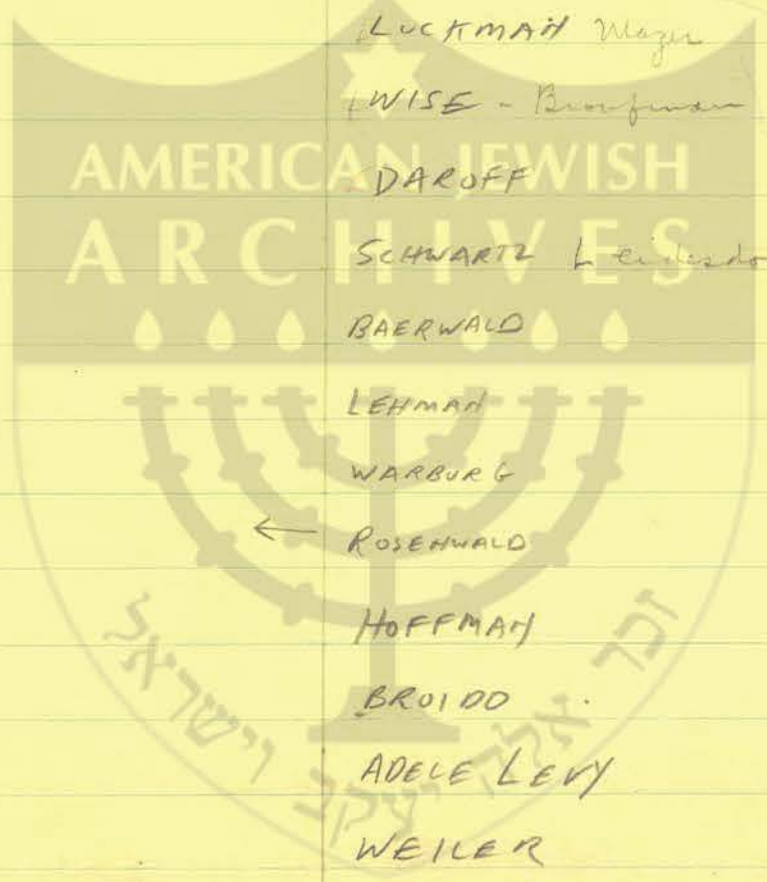 LUCKMAN Mazer
WISE - Bronfman
AMERICAN JEWISH
ARCHIVES
DAROFF
SCHWARTZ Leidesdo
BAERWALD
LEHMAN
WARBURG
← ROSENWALD
HOFFMAN
BROIDO
ADELE LEVY
WEILER
זכר אלה יעקב וישראל